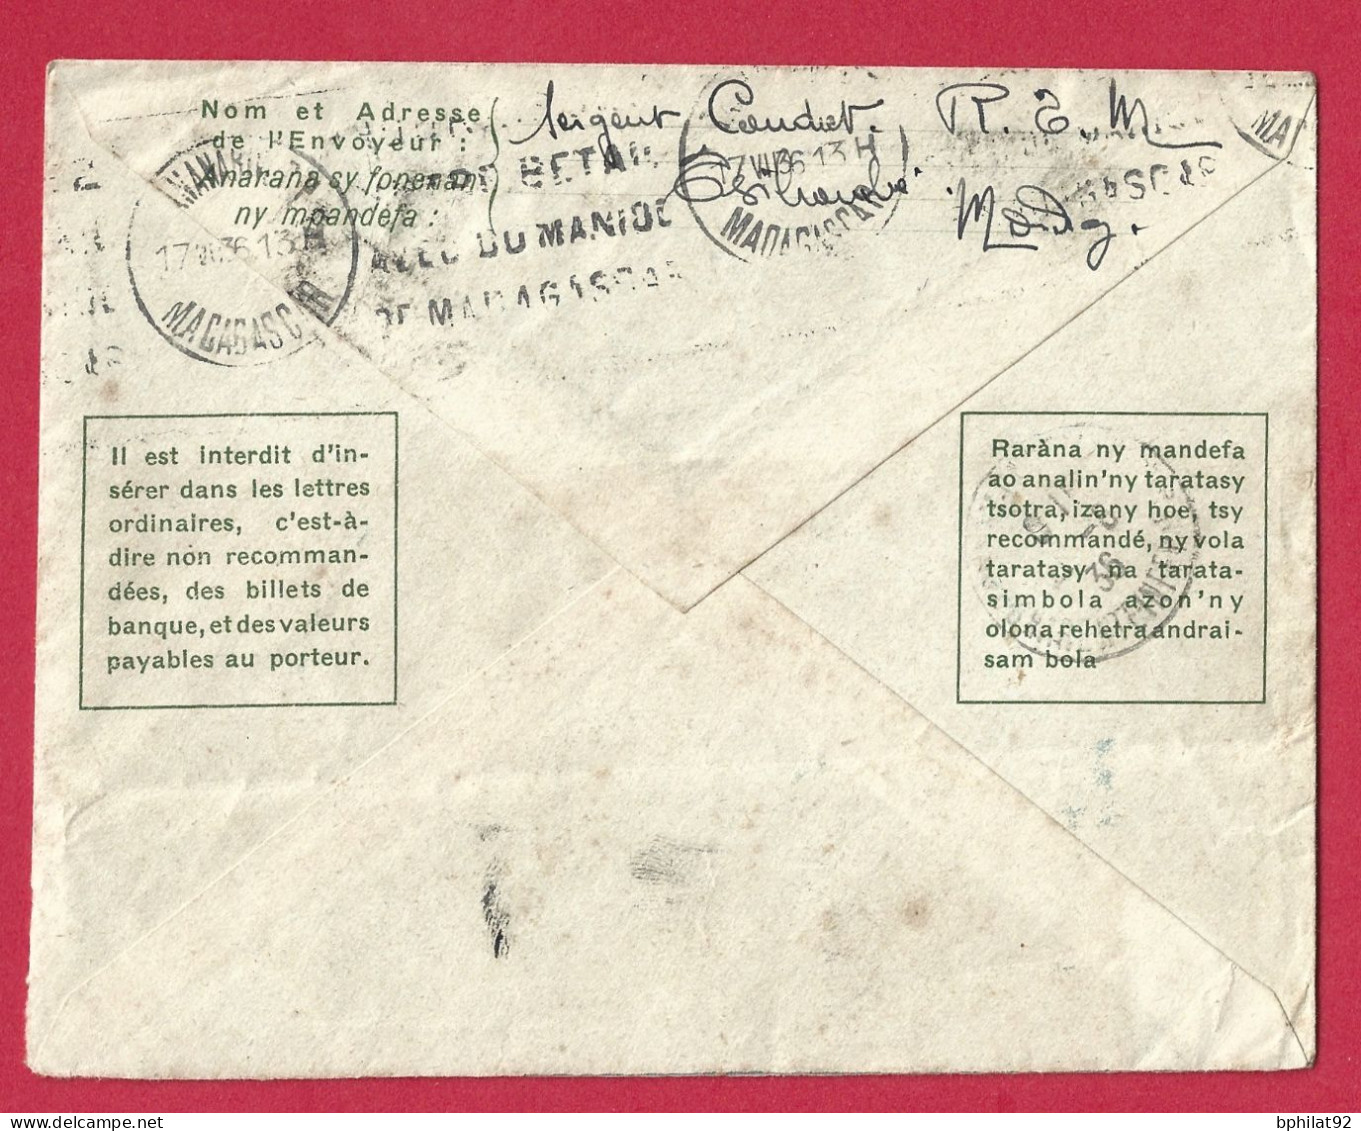 Nom et Adresse
de l'Envoyeur :
Anaraña sy fonenan'
ny mpandefa :
Sergent Coudret. R. E. M.
Madag.
17 VII 36 13 H
MADAGASCAR
BETAIL
DU MANIOC
DE MADAGASCAR
17 VII 36 13 H
MADAGASCAR
MA
Il est interdit d'in-
sérer dans les lettres
ordinaires, c'est-à-
dire non recomman-
dées, des billets de
banque, et des valeurs
payables au porteur.
Raràna ny mandefa
ao analin'ny taratasy
tsotra, izany hoe, tsy
recommandé, ny vola
taratasy na tarata-
simbola azon'ny
olona rehetra andrai-
sam bola
36
bphilat92